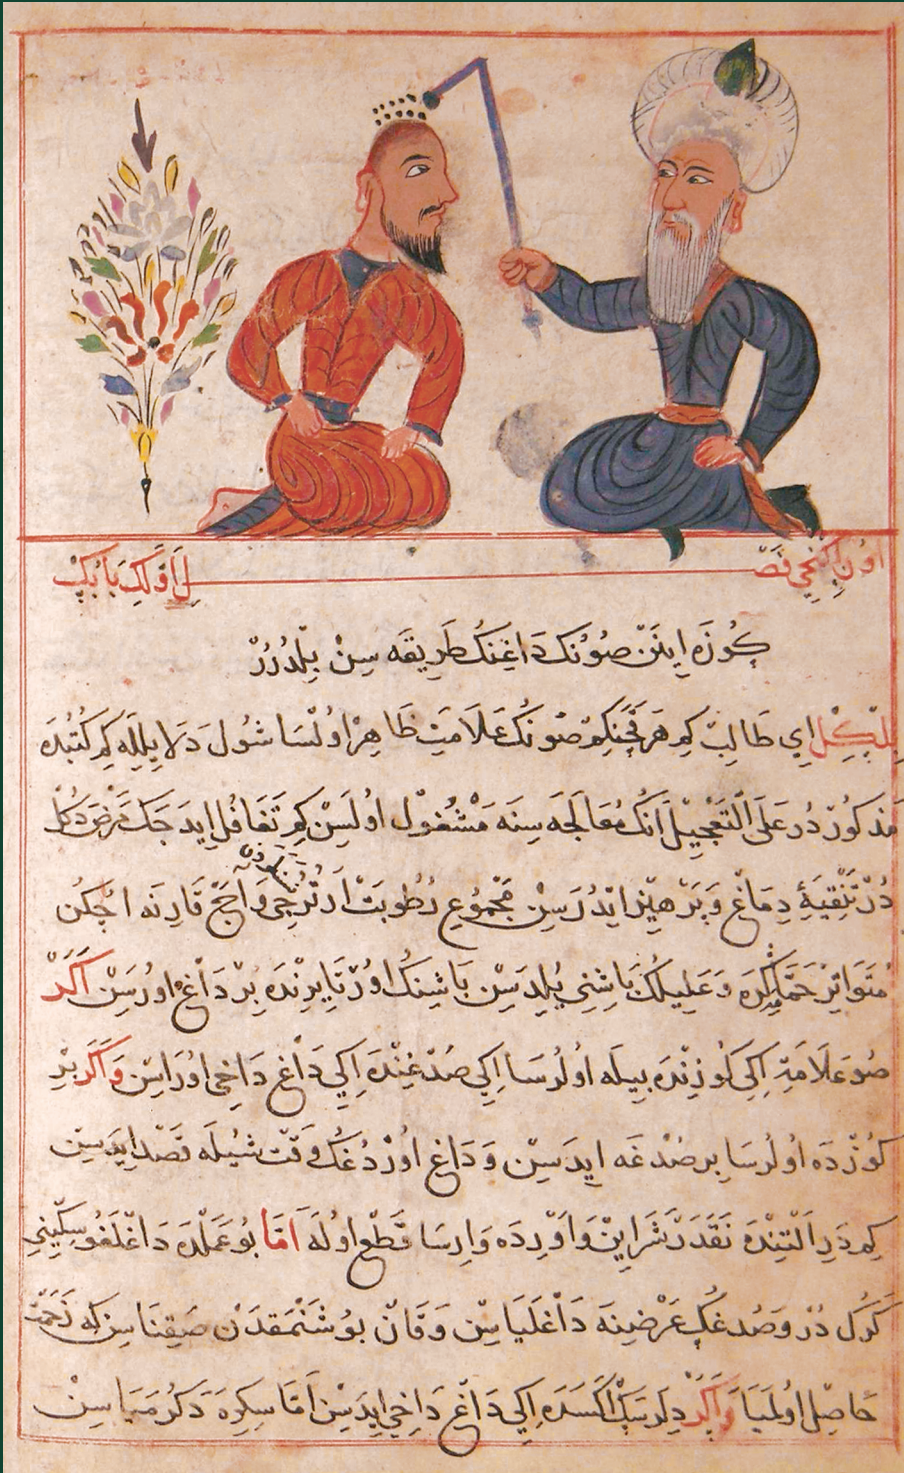 اون اكنجي فصل اولكي بابك
كوزه اينن صونك داغنك طريقه سن بلدرر
بلكل اي طالب كم هر قچنكم صونك علامت ظاهر اولسا شول دلايله كم كتبده
مذكوردر على التعجيل انك معالجه سنه مشغول اولسن كم تغافل ايدجك مرض
در تنقيۀ دماغ و پرهيز ايدرسن مجموع رطوبت ارترجي و اچ قارنه اچكن
متواتر حمامه كره و عليلك باشني يلدسن باشنك اورتايرنده بر داغ اورسن اكر
صو علامتي اكي كوزنده بيله اولرسا اكي صدغنده اكي داغ داخي اوراسن و اكر بر
كوزده اولرسا بر صدغه ايدسن و داغ اوردغك وقت شيله قصد ايدسن
كم دري التنده نقدر شرايين و اورده وارسا قطع اوله اما بو عملده داغلغو سكيني
كركدر و صدغك عرضينه داغلياسن و قان بوشنمقدن صقناسن كه زحمت
حاصل اولميا و اكر دلرسك اكسده اكي داغ داخي ايدسن اما سكره دكرمياسن